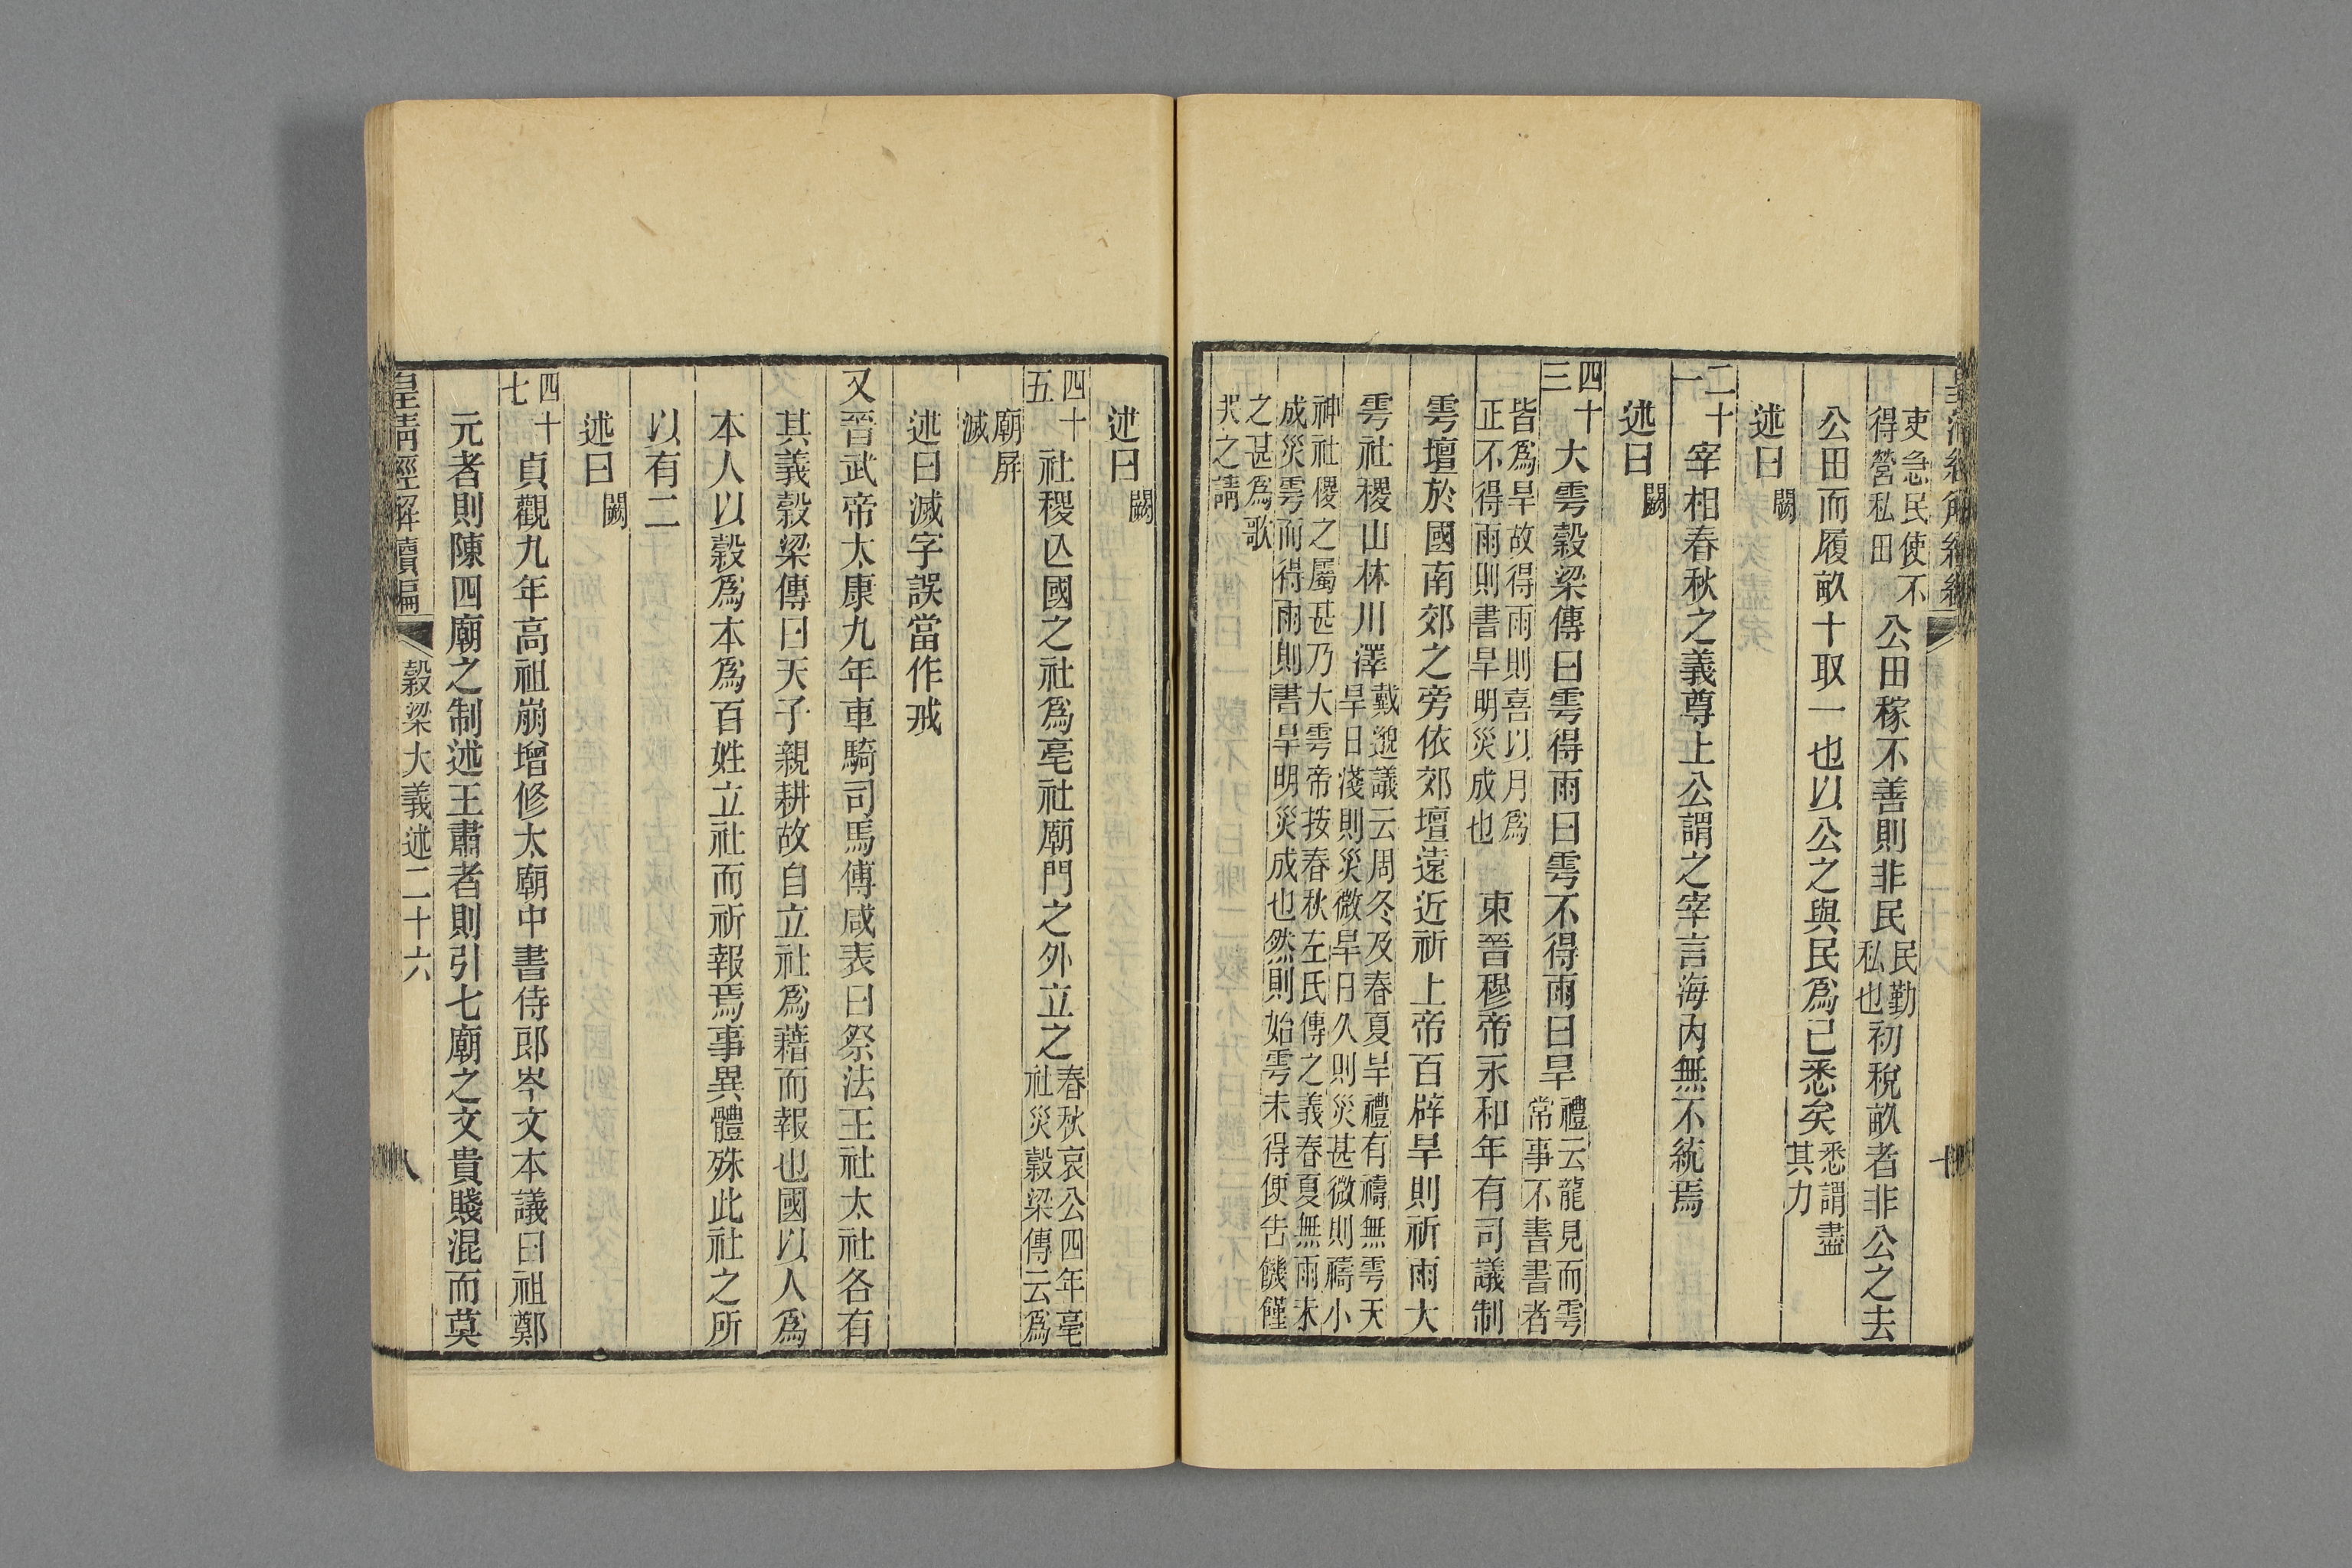 吏急民使不得營私田公田稼不善則非民民勤私也初稅畝者非公之去
公田而履畝十取一也以公之與民爲已悉矣悉謂盡其力
述曰闕
二十一宰相春秋之義尊上公謂之宰言海内無不統焉
述曰闕
四十三大雩穀梁傳曰雩得雨曰雩不得雨曰旱禮云龍見而雩常事不書書者
皆爲旱故得雨則喜以月爲正不得雨則書旱明災成也東晉穆帝永和年有司議制
雩壇於國南郊之旁依郊壇遠近祈上帝百辟旱則祈雨大
雩社稷山林川澤戴邈議云周冬及春夏旱禮有禱無雩天旱日淺則災微旱日久則災甚微則禱小
神社稷之屬甚乃大雩帝按春秋左氏傳之義春夏無雨未成災雩而得雨則書旱明災成也然則始雩未得便告饑饉
之甚爲歌哭之請
述曰闕
四十五社稷亾國之社爲亳社廟門之外立之春秋哀公四年亳社災穀梁傳云爲
廟屏滅
述曰滅字誤當作戒
又晉武帝太康九年車騎司馬傅咸表曰祭法王社太社各有
其義穀梁傳曰天子親耕故自立社爲藉而報也國以人爲
本人以穀爲本爲百姓立社而祈報焉事異體殊此社之所
以有二
述曰闕
四十七貞觀九年高祖崩增修太廟中書侍郎岑文本議曰祖鄭
元者則陳四廟之制述王肅者則引七廟之文貴賤混而莫
皇清經解續編 穀梁大義述二十六 八